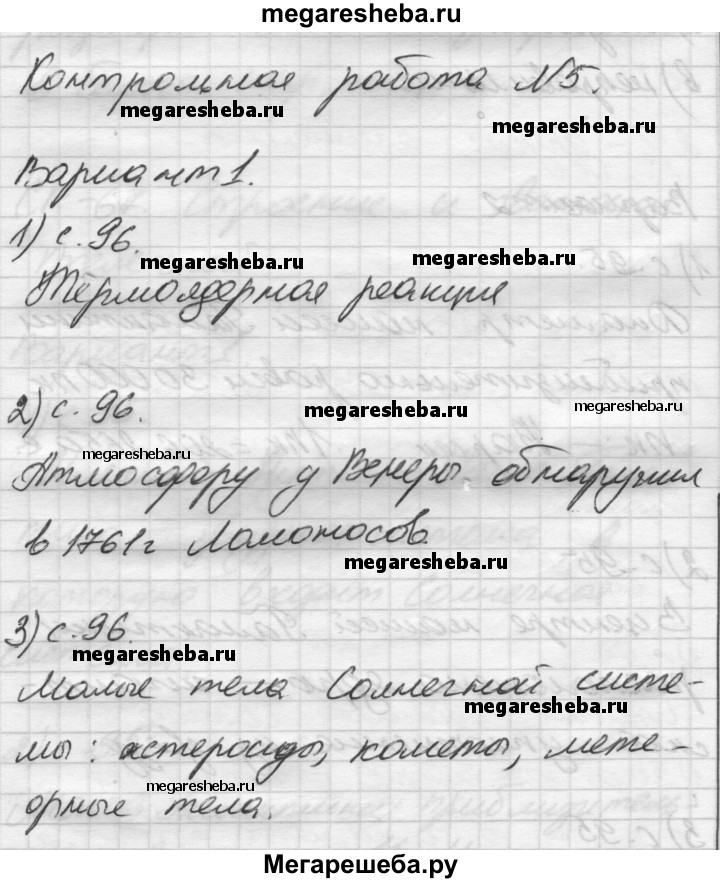 megaresheba.ru
Контрольная работа №5.
megaresheba.ru
megaresheba.ru
Вариант 1.
1) с. 96.
megaresheba.ru
megaresheba.ru
Термоядерная реакция
2) с. 96.
megaresheba.ru
megaresheba.ru
megaresheba.ru
Атмосферу у Венеры обнаружил
в 1761г Ломоносов.
megaresheba.ru
3) с. 96.
megaresheba.ru
Малые тела Солнечной систе-
megaresheba.ru
мы: астероиды, кометы, мете-
megaresheba.ru
орные тела.
megaresheba.ru
Мегарешеба.ру